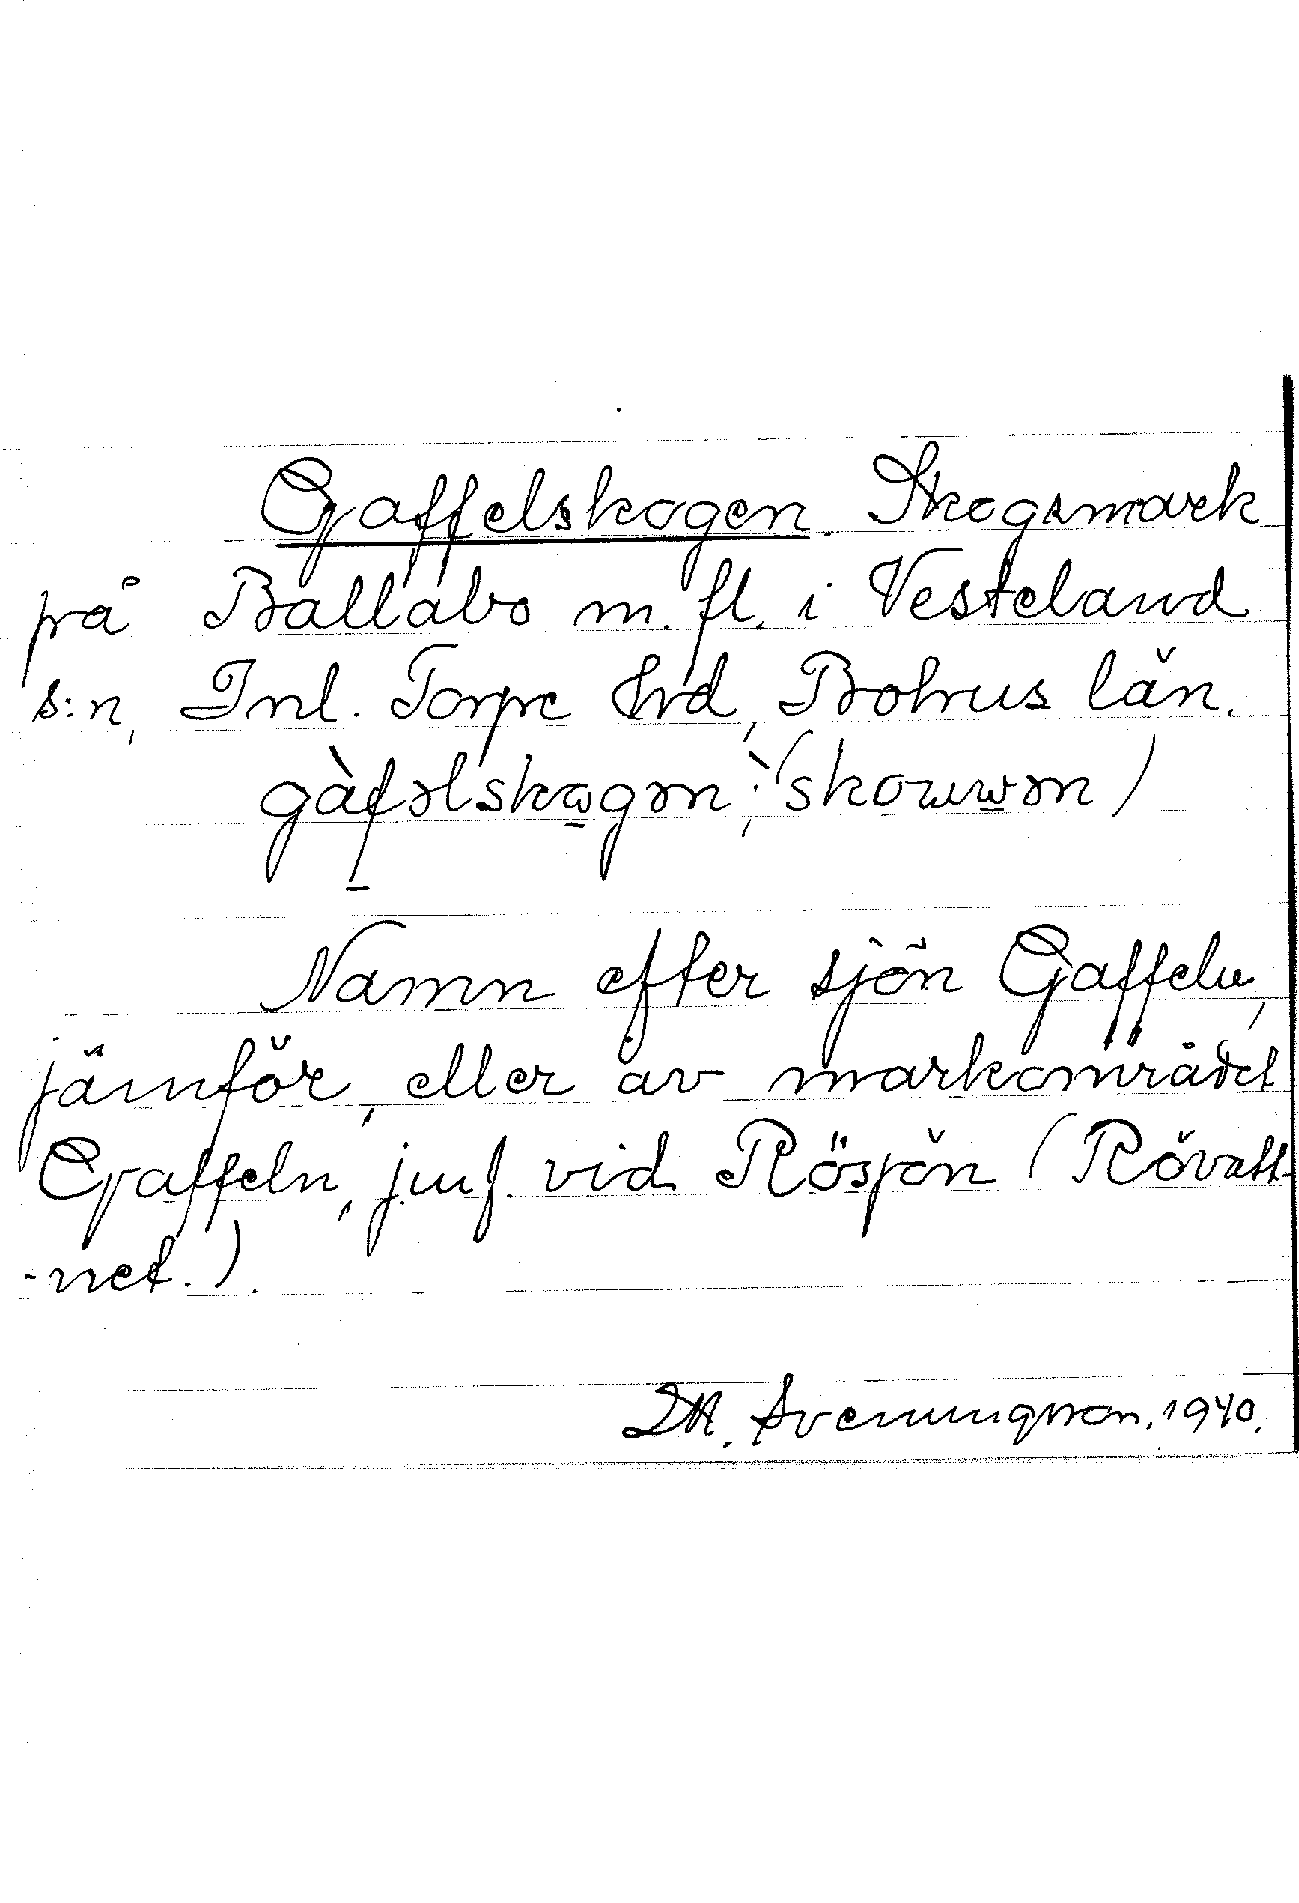 Gaffelskogen. Skogsmark
på Ballabo m. fl. i Vesteland
s:n, Inl. Torpe Hrd, Bohus län.
gàfəlskωgən; (skowωən)
Namn efter sjön Gaffeln,
jämför, eller av markområdet
Gaffeln, jmf. vid Rösjön (Rövatt-
-net.).
Sveningsson. 1940.